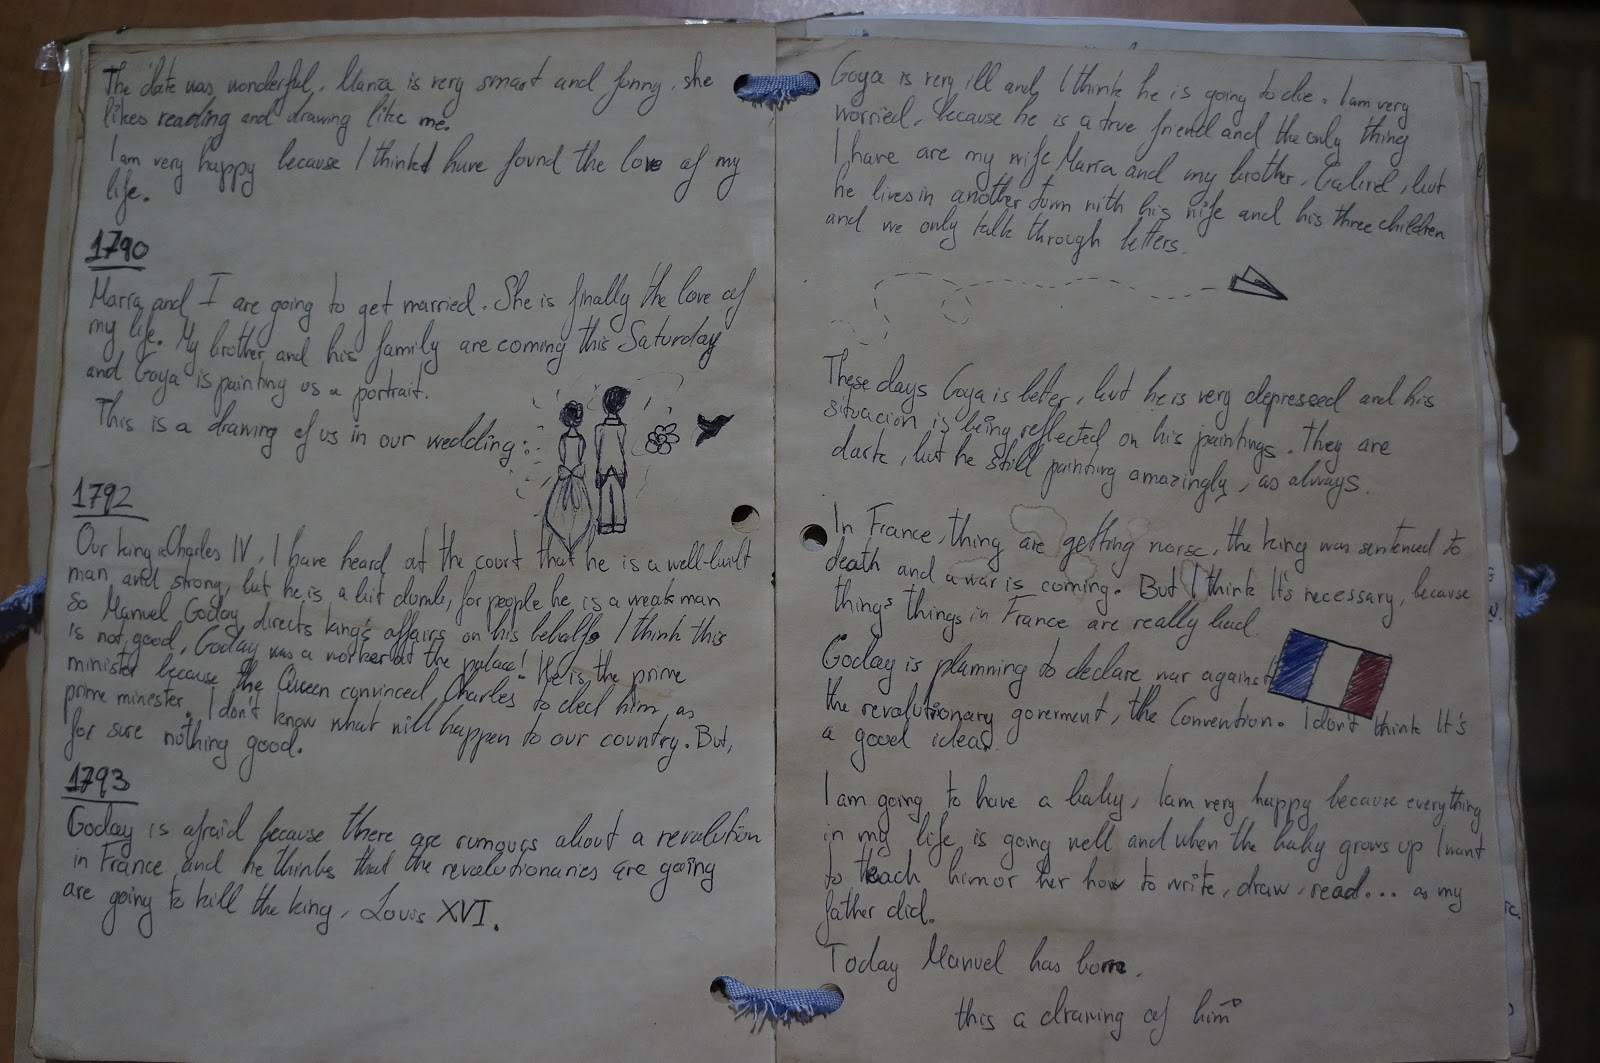 The date was wonderful. María is very smart and funny. she
likes reading and drawing like me.
I am very happy because I think I have found the love of my
life.
1790
María and I are going to get married. She is finally the love of
my life. My brother and his family are coming this Saturday
and Goya is painting us a portrait.
This is a drawing of us in our wedding:
1792
Our king is Charles IV, I have heard at the court that he is a well-built
man and strong, but he is a bit dumb, for people he is a weak man
So Manuel Goday directs king's affairs on his behalf. I think this
is not good, Goday was a worker at the palace! He is the prime
minister because the Queen convinced Charles to elect him, as
prime minester. I don't know what will happen to our country. But,
for sure nothing good.
1793
Goday is afraid because there are rumours about a revolution
in France and he thinks that the revolutionaries are going
are going to kill the king, Louis XVI.
Goya is very ill and I think he is going to die. I am very
worried, because he is a true friend and the only thing
I have are my wife María and my brother, Gabriel, but
he lives in another town with his wife and his three children
and we only talk through letters.
These days Goya is better, but he is very depressed and his
situacion is being reflected on his paintings. They are
dark, but he still painting amazingly, as always.
In France, thing are getting worse, the king was sentenced to
death and a war is coming. But I think It's necessary, because
things things in France are really bad.
Goday is plamming to declare war against
the revolutionary goverment, the Convention. I don't think It's
a good idea.
I am going to have a baby, I am very happy because everything
in my life is going well and when the baby grows up I want
to teach him or her how to write, draw, read... as my
father did.
Today Manuel has born.
this a drawing of him